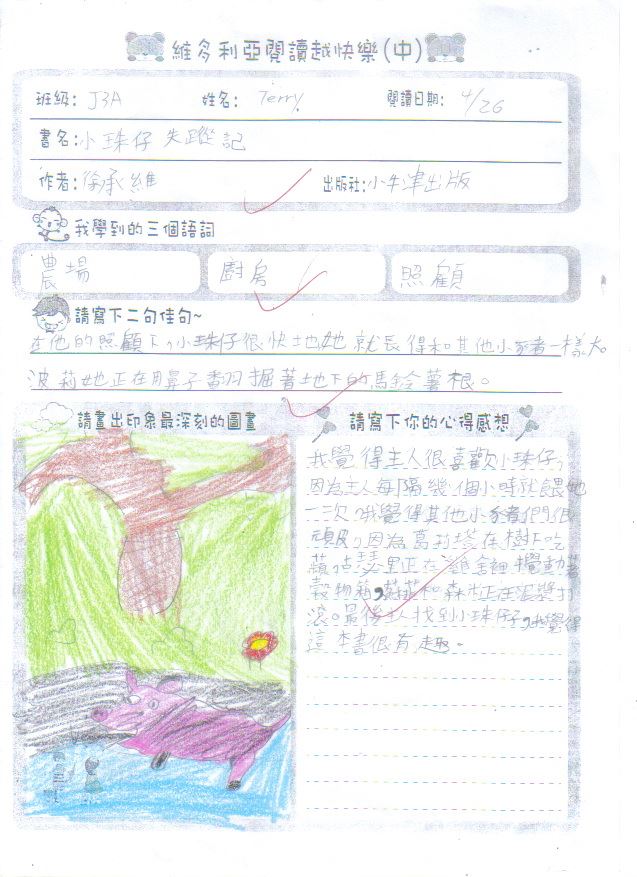 維多利亞閱讀越快樂(中)
班級: J3A 姓名: Terry 閱讀日期: 4/26
書名:小珠仔失蹤記
作者:徐承維 出版社:小牛津出版
我學到的三個語詞
農場 廚房 照顧
請寫下二句佳句~
在他的照顧下,小珠仔很快地她就長得和其他小豬一樣大。
波莉她正在用鼻子翻掘著地下的馬鈴薯根。
請畫出印象最深刻的圖畫 請寫下你的心得感想
我覺得主人很喜歡小珠仔,
因為主人每隔幾個小時就餵她
一次,我覺得其他小豬們很
頑皮,因為葛利塔在樹下吃
瑟里正在雞舍裡攪動著
穀物箱,莉莉和森林正在泥漿打
滾。最後主人找到小珠仔,我覺得
這本書很有趣。